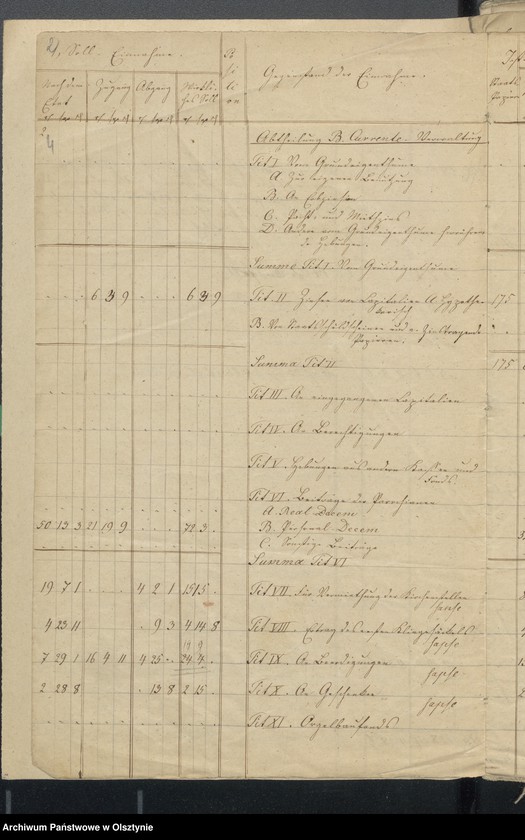 2, Soll-Einnahme.
Nach dem Etat Zugang Abgang Wirkliches Soll
Gegenstand der Einnahme.
Abtheilung B. Currente-Verwaltung
Tit I Vom Grundeigenthume
A. Zur eigenen Benützung
B. An Erbzinsen
C. Pacht- und Miethzins
D. Andere vom Grundeigenthume
Hebungen.
Summa Tit. I. Vom Grundeigenthume.
6 29 9 6 29 9 Tit. II Zinsen von Capitalien A. Hypothe- 175
karisch
B. Von Staatsschuldscheinen und a. Zinstragende
Papieren.
Summa Tit II 175
Tit III. An eingegangenen Capitalien
Tit IV. An Berechtigungen
Tit V. Hebungen aus andern Kassen und
Fonds.
Tit VI. Beiträge der Parochianen
A. Real Decem
50 13 3 21 19 9 72 3 B. Personal Decem
C. Sonstige Beiträge
Summa Tit VI
19 7 1 4 2 1 15 15 Tit VII. Für Vermiethung der Kirchenstellen
4 23 11 9 3 4 14 8 Tit VIII. Ertrag des Klingesäckels
19 9
7 29 1 16 4 11 4 25 24 4 Tit IX. An Beerdigungen
2 28 8 13 8 2 15 Tit X. An Geschenken
Tit XI. Orgelbaufonds
Archiwum Państwowe w Olsztynie